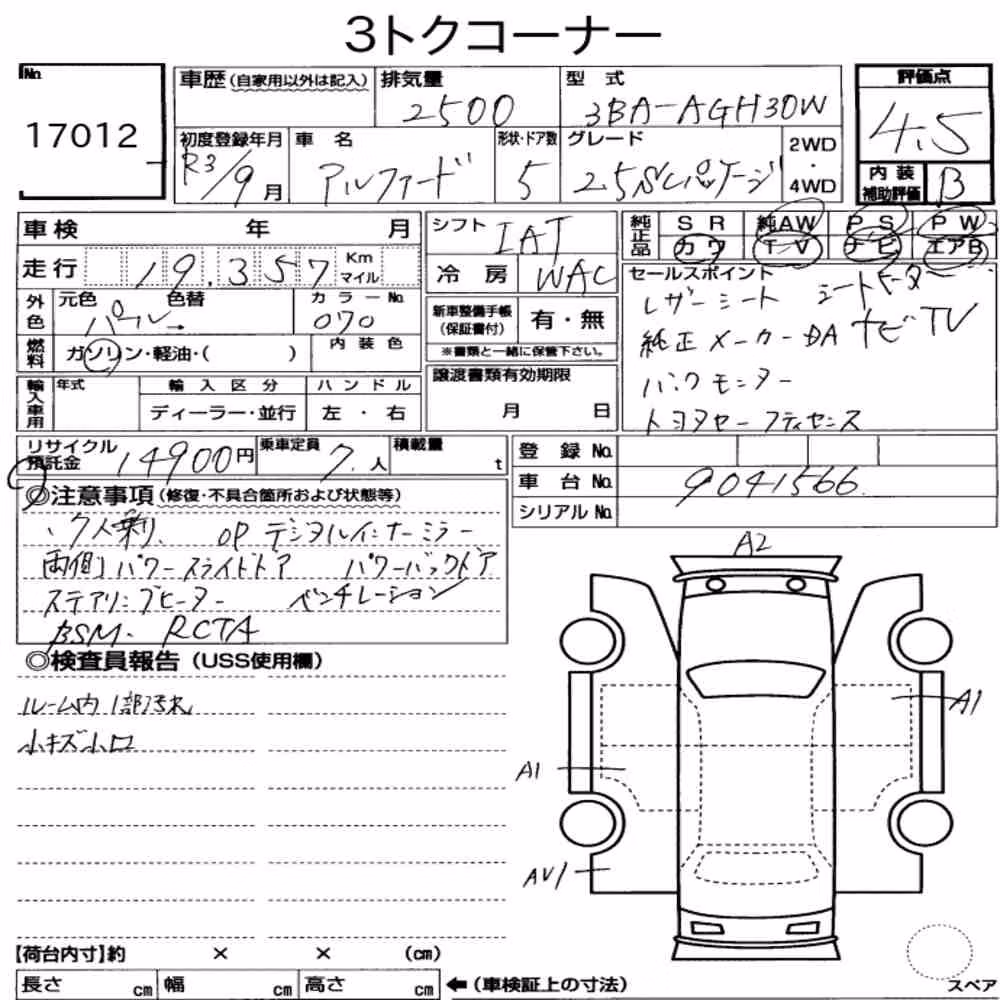 3トクコーナー
No.
17012
車歴 (自家用以外は記入)
排気量
2500
型 式
3BA-AGH30W
評価点
4.5
初度登録年月
R3/9月
車 名
アルファード
形状・ドア数
5
グレード
2.5SCパッケージ
2WD
・
4WD
内 装
補助評価
B
車検 年 月
シフト
IAT
純正品
SR 純AW PS PW
カワ TV ナビ エアB
走行 19,357 Km マイル
冷 房
WAC
セールスポイント
レザーシート シートヒーター
純正メーカーDA ナビ TV
バックモニター
トヨタセーフティセンス
外色
元色
パール
色替
→
カラーNo.
070
新車整備手帳
(保証書付)
有・無
※書類と一緒に保管下さい。
燃料
ガソリン・軽油・( )
内 装 色
輸入車用
年式
輸 入 区 分
ディーラー・並行
ハ ン ド ル
左 ・ 右
譲渡書類有効期限
月 日
リサイクル
預託金
14900円
乗車定員
7.人
積載量
t
登 録 No.
車 台 No.
9041566
シリアル No.
◎注意事項(修復・不具合箇所および状態等)
、7人乗り、 OP デジタルインナーミラー
両側パワースライドドア パワーバックドア
ステアリングヒーター ベンチレーション
BSM. RCTA
◎検査員報告 (USS使用欄)
ルーム内1部汚れ
小キズ小凹
A2
A1
A1
AU1
【荷台内寸】約 × × (cm)
長さ cm
幅 cm
高さ cm
←(車検証上の寸法)
スペア